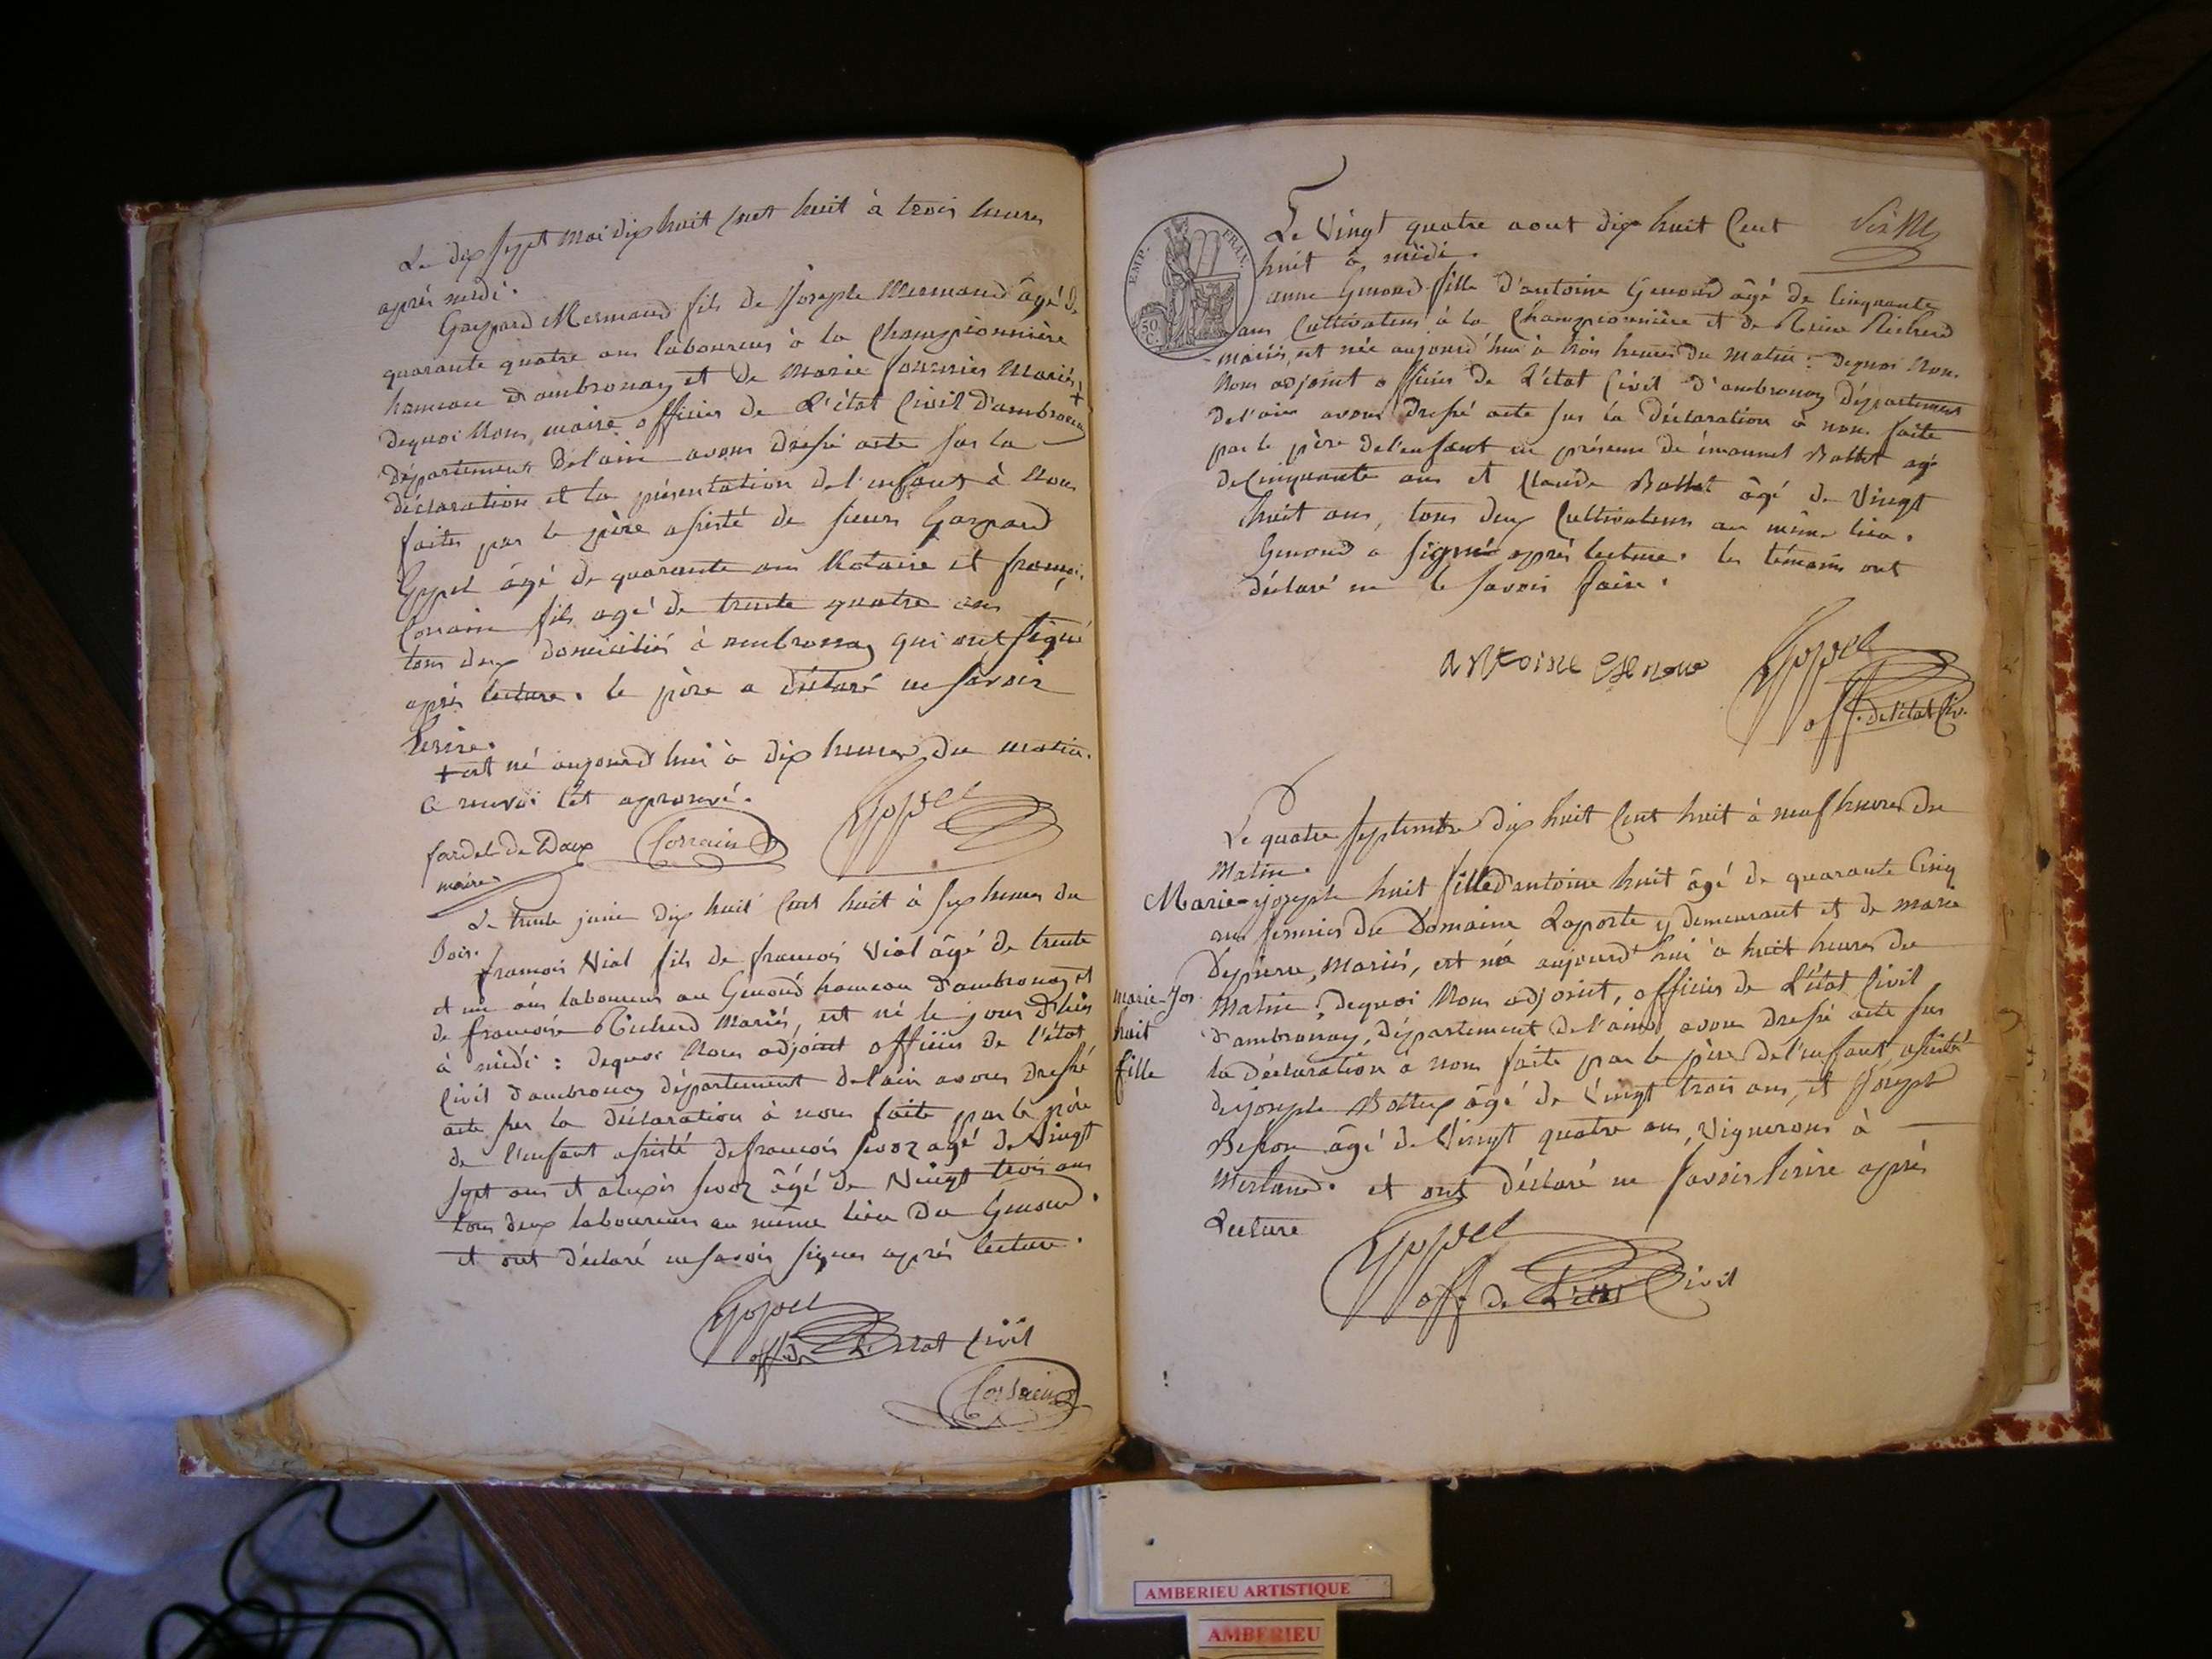 Le dix sept mai dix huit cent huit à trois heures
après midi.
Gaspard Mermand fils de Joseph Mermand âgé de
quarante quatre ans laboureur à la Championnière
hameau d'ambronay et de Marie fournier Mariés, +
dequoi Nous, maire officier de L'état Civil d'ambronay
département de l'ain avons dressé acte sur la
déclaration et la présentation de l'enfant à Nous
faites par le père assisté de sieurs Gaspard
Goppel âgé de quarante ans Notaire et françois
Corrain fils agé de trente quatre ans
tous deux domiciliés à ambronay qui ont signé
après lecture. le père a déclaré ne savoir
Ecrire.
+ est né aujourd'hui à dix heures du matin.
a renvoi est aprouvé.
Goppel
Corrain
fardel de Daux
maire
Le trente juin dix huit Cent huit à six heures du
Soir.
françois Vial fils de françois Vial âgé de trente
et un ans laboureur au Genoud hameau d'ambronay et
de françoise Richerd Mariés, est né le jour d'hier
à midi : dequoi Nous adjoint officier de l'état
Civil d'ambronay département de l'ain avons dressé
acte sur la déclaration à nous faite par le père
de l'enfant assisté de françois agé de Vingt
sept ans et alexis âgé de Vingt trois ans
tous deux laboureurs au même lieu du Genoud.
et ont déclaré ne savoir signer après lecture.
Goppel
off. de L'Etat Civil
Corrain
EMP. FRAN.
50 C.
Le Vingt quatre aout dix huit Cent
huit à midi.
anne Genoud fille d'antoine Genoud âgé de Cinquante
ans Cultivateur à la Championnière et de Reine Richerd
mariés, est née aujourd'hui à trois heures du matin : dequoi Nous
Nous adjoint officier de L'état Civil d'ambronay Département
de l'ain avons dressé acte sur la déclaration à nous faite
par le père de l'enfant en présence de émanuel Bollet agé
de Cinquante ans et Claude Bollet âgé de Vingt
huit ans, tous deux Cultivateurs au même lieu.
Genoud a signé après lecture. les témoins ont
déclaré ne le savoir faire.
antoine Genou
Goppel
off. de l'état Civ.
Le quatre septembre dix huit Cent huit à neuf heures du
Matin.
Marie-joseph huit fille d'antoine huit âgé de quarante Cinq
ans fermier du Domaine Laporte y demeurant et de marie
Depierre, Mariés, est née aujourd'hui à huit heures du
Matin, dequoi Nous adjoint, officier de L'état Civil
d'ambronay, département de l'ain, avons dressé acte sur
la déclaration à nous faite par le père de l'enfant, assisté
de joseph Bollet âgé de Vingt trois ans, et Joseph
Besson âgé de Vingt quatre ans, Vignerons à
Merland. et ont déclaré ne savoir Ecrire après
Lecture
marie-Jos
huit
fille
Goppel
off. de L'état Civil
AMBERIEU ARTISTIQUE
AMBERIEU